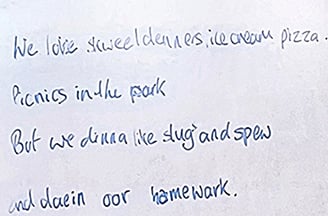 We love skweel denners, ice cream pizza.
Picnics in the park
But we dinna like slugs and spew
and daein oor homewark.